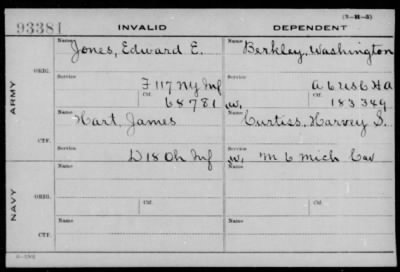 (3-H-5)
93381 INVALID DEPENDENT
Name Name
Jones, Edward E. Berkley, Washington
ARMY
ORIG.
Service Service
F 117 Ny Inf A 6 US C H A
Ctf. Ctf.
68781 w. 183349
Name Name
Hart, James Curtiss, Harvey S.
CTF.
Service Service
D 18 Oh Inf w. M 6 Mich Cav
NAVY
Name Ctf. Name Ctf.
ORIG.
Name Name
CTF.